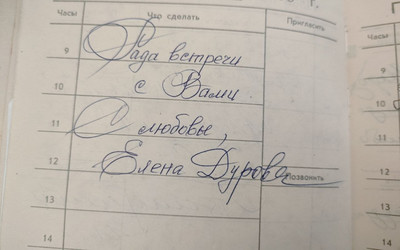 Часы Что сделать Пригласить Часы
г.
9 Рада встречи 9
10 с Вами. 10
11 С любовью, 11
12 Елена Дурова Позвонить 12
13 13
14 14